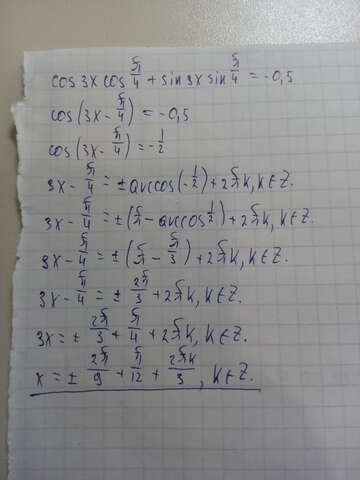 cos 3x cos π/4 + sin 3x sin π/4 = -0,5
cos(3x - π/4) = -0,5
cos(3x - π/4) = -1/2
3x - π/4 = ± arccos(-1/2) + 2πk, k∈Z.
3x - π/4 = ±(π - arccos 1/2) + 2πk, k∈Z.
3x - π/4 = ±(π - π/3) + 2πk, k∈Z.
3x - π/4 = ± 2π/3 + 2πk, k∈Z.
3x = ± 2π/3 + π/4 + 2πk, k∈Z.
x = ± 2π/9 + π/12 + 2πk/3, k∈Z.